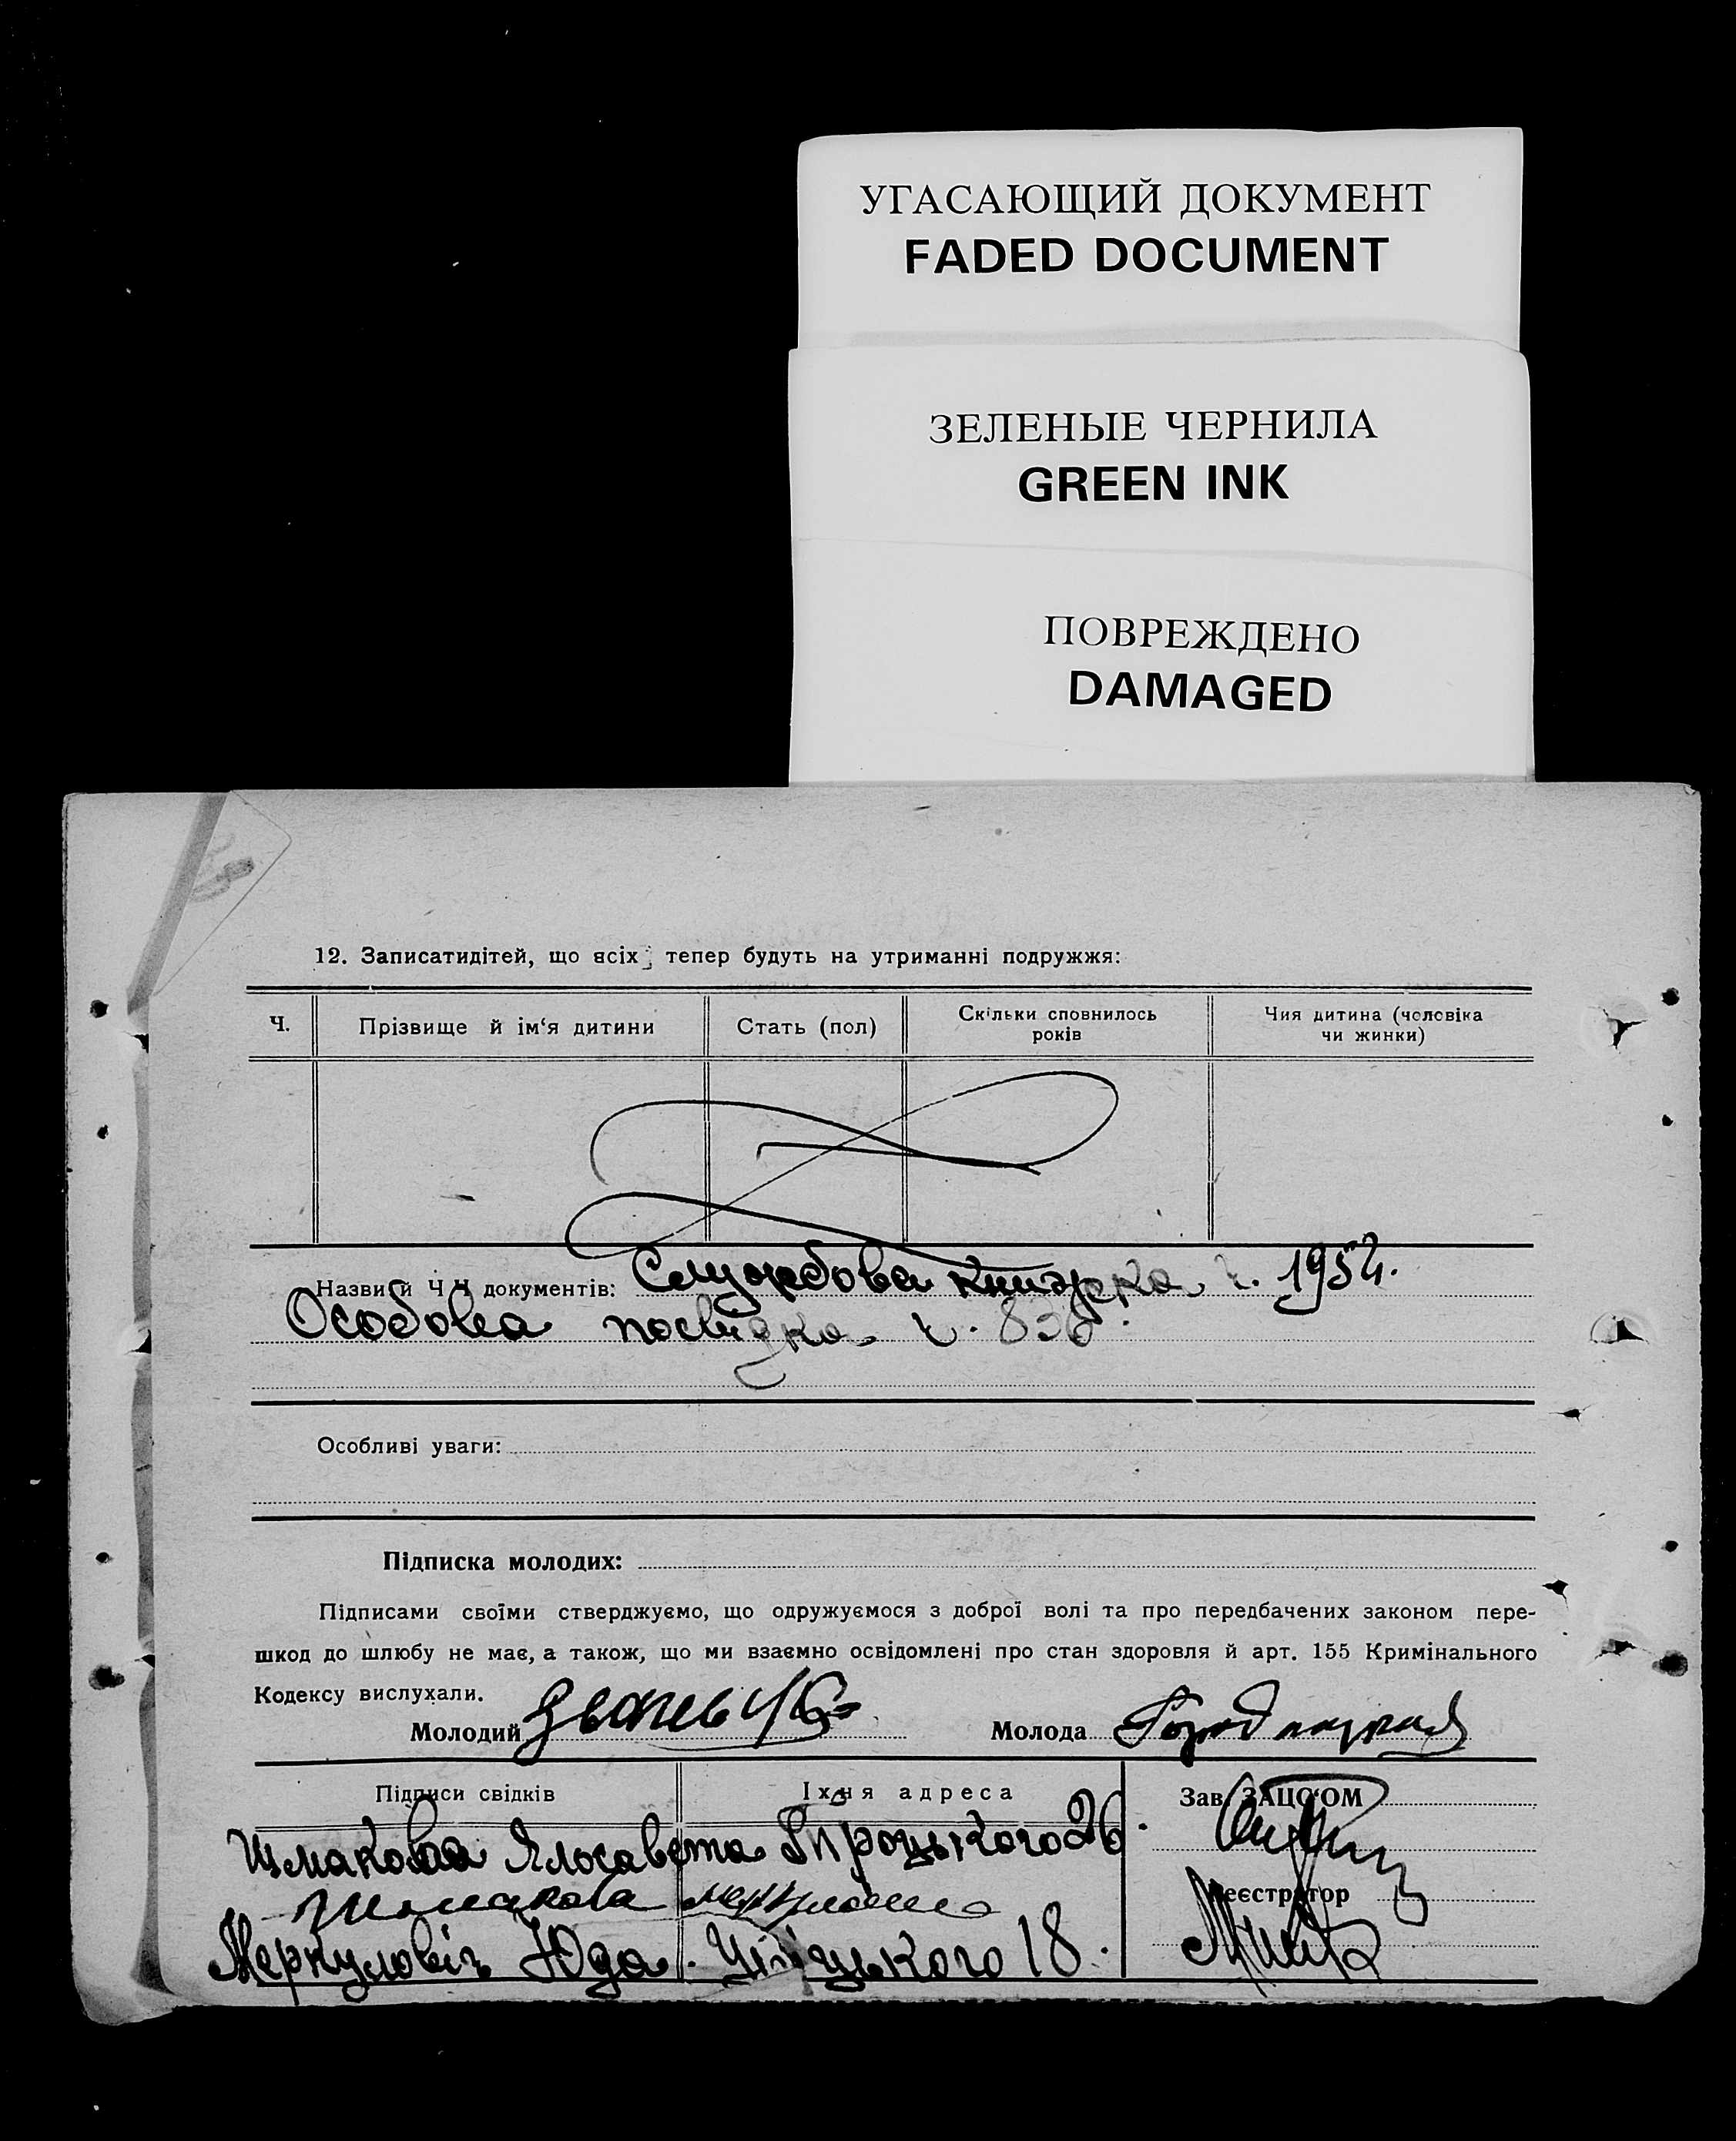 УГАСАЮЩИЙ ДОКУМЕНТ
FADED DOCUMENT
ЗЕЛЕНЫЕ ЧЕРНИЛА
GREEN INK
ПОВРЕЖДЕНО
DAMAGED
12. Записатидітей, що всіх тепер будуть на утриманні подружжя:
Ч. Прізвище й ім‘я дитини Стать (пол) Скільки сповнилось років Чия дитина (чоловіка чи жинки)
Назви й Ч Ч документів: Службова книжка ч. 1954.
Особова посвідка ч. 836.
Особливі уваги:
Підписка молодих:
Підписами своїми стверджуємо, що одружуємося з доброї волі та про передбачених законом пере-
шкод до шлюбу не має, а також, що ми взаємно освідомлені про стан здоровля й арт. 155 Кримінального
Кодексу вислухали.
Молодий Молода
Підписи свідків Їхня адреса Зав. ЗАЦС‘ОМ
Шмакова Єлосавета 26
Шмакова Реєстратор
Меркуловіч Юда. 18.